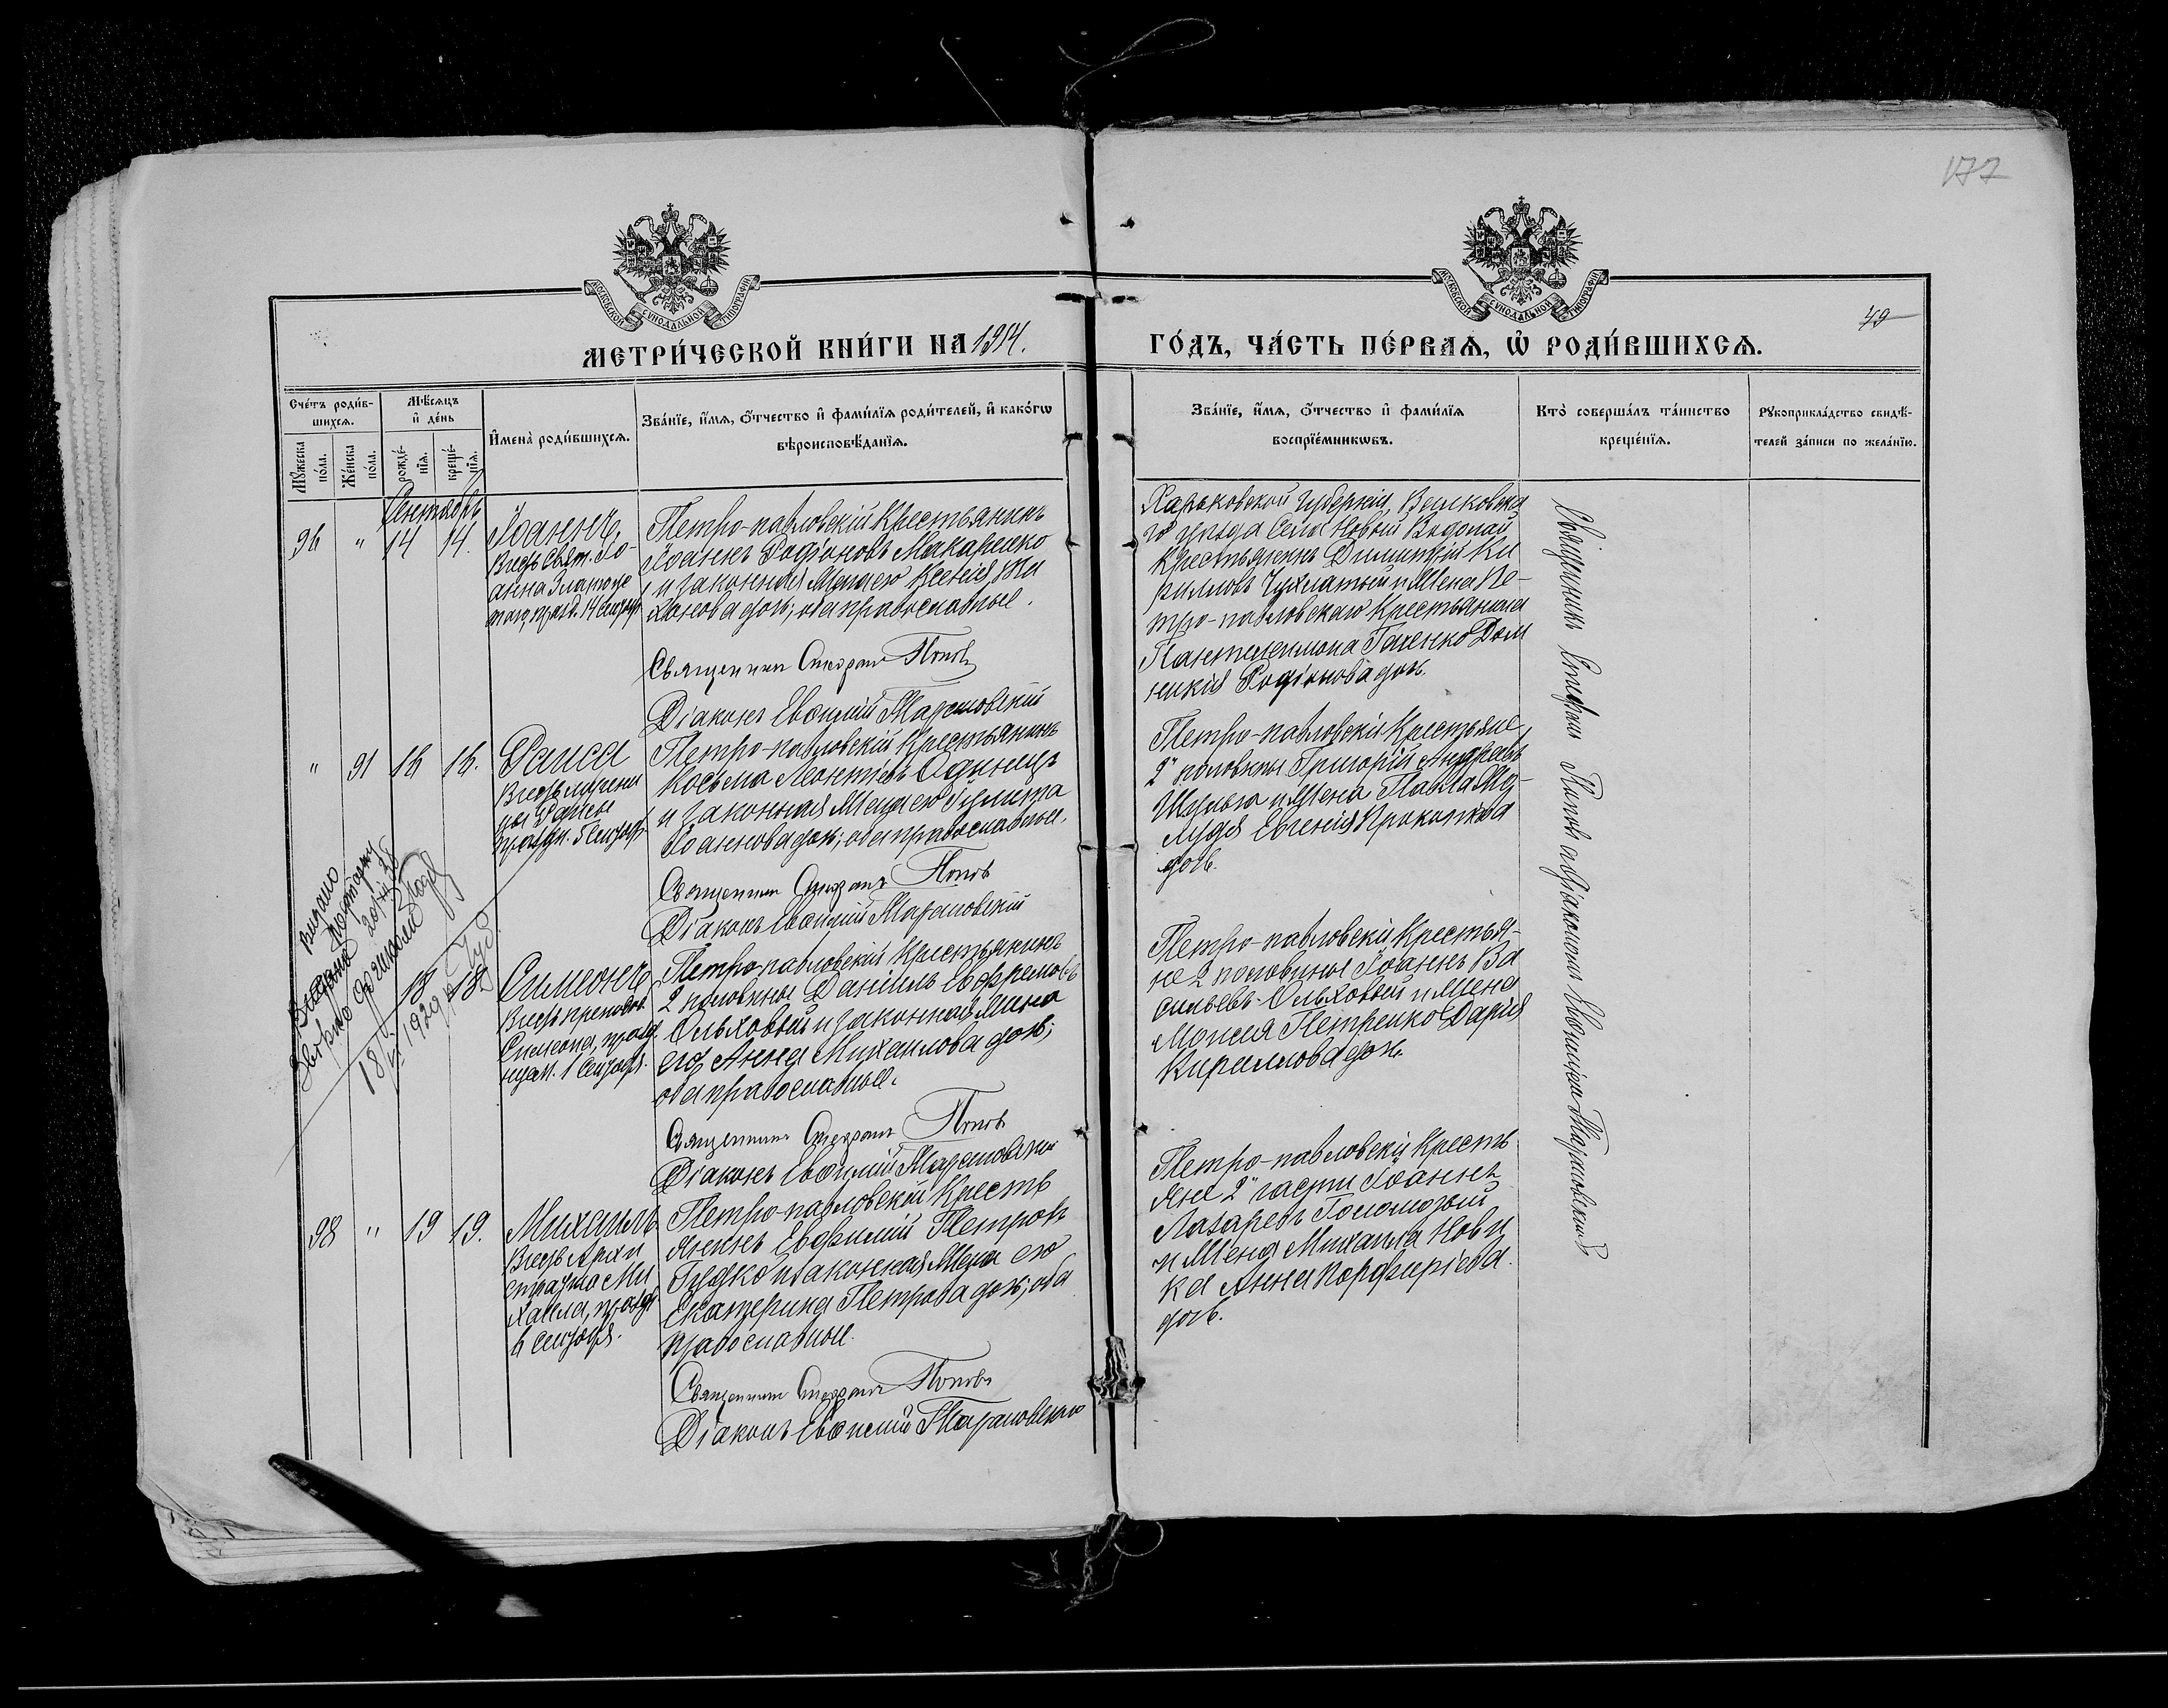 177
79
МОСКОВСКОЙ СѴНОДАЛЬНОЙ ТИПОГРАФІИ
МОСКОВСКОЙ СѴНОДАЛЬНОЙ ТИПОГРАФІИ
МЕТРИ́ЧЕСКОЙ КНИ́ГИ НА 1914.
ГО́ДЪ, ЧА́СТЬ ПЕ́РВАѦ, Ѽ РОДИ́ВШИХСѦ.
Сче́тъ роди́в-
шихсѧ.
Мѣ́сѧцъ
и҆ де́нь
Мꙋ́жеска по́ла.
Же́нска по́ла.
рожде́-
нїѧ.
креще́-
нїѧ.
И҆мена̀ роди́вшихсѧ.
Зва́нїе, и҆́мѧ, ѻ҆́тчество и҆ фами́лїѧ роди́телей, и҆ како́гѡ
вѣроисповѣ́данїѧ.
Зва́нїе, и҆́мѧ, ѻ҆́тчество и҆ фами́лїѧ
воспрїе́мникѡвъ.
Кто̀ соверша́лъ та́инство
креще́нїѧ.
Рꙋкоприкла́дство свидѣ́-
телей за́писи по жела́нїю.
Сентябрь
96 " 14 14.
Іоаннъ,
въ честь Свят. Іо-
анна Златоус
таго, празд. 14 Сентяб.
Петро-павловскій крестьянинъ
Іоаннъ Родіоновъ Макаренко
и законная жена его Ксенія Ти
хонова дочь; оба православные.
Священникъ Стефанъ Поповъ
Діаконъ Евѳимій Тарановскій
Харьковской губерніи, Валковска
го уѣзда села Новый Водопай
крестьянинъ Димитрій Ки
рилловъ Чухлатый и жена Пе-
тро-павловскаго крестьянина
Пантелеимона Гаценко Дом
никія Родіонова дочь.
" 91 16 16.
Раиса
въ честь мучени
цы Раисы
праздн. 5 Сентяб.
Петро-павловскій крестьянинъ
Косьма Леонтіевъ Одинецъ
и законная жена его Іулитта
Іоаннова дочь; оба православные.
Священникъ Стефанъ Поповъ
Діаконъ Евѳимій Тарановскій
Петро-павловскіе крестьяне
2й половины Григорій Андреевъ
Шульга и жена Павла
Евгенія Прокопіева
дочь.
Видано
20
18/VI 1929 р.
18 18
Симеонъ
въ честь преподоб.
Симеона, празд
нуем. 1 Сентяб.
Петро-павловскій крестьянинъ
2 половины Даніилъ Ефремовъ
Ольховый и законная жена
его Анна Михаилова дочь;
оба православные.
Священникъ Стефанъ Поповъ
Діаконъ Евѳимій Тарановскій
Петро-павловскіе крестья-
не 2 половины Іоаннъ Ва
сильевъ Ольховый и жена
Моисея Петренко Дарія
Кириллова дочь.
98 " 19 19.
Михаилъ
въ честь Архи
стратига Ми
хаила, празд.
6 Сентября.
Петро-павловскій кресть
янинъ Евфимій Петровъ
Гредко и законная жена его
Екатерина Петрова дочь; оба
православные.
Священникъ Стефанъ Поповъ
Діаконъ Евѳимій Тарановскій
Петро-павловскіе кресть
яне 2й части Іоаннъ
Лазаревъ Голомозый
и жена Михаила Нови
ка Анна Порфиріева
дочь.
Священникъ Стефанъ Поповъ съ діакономъ Евѳиміемъ Тарановскимъ